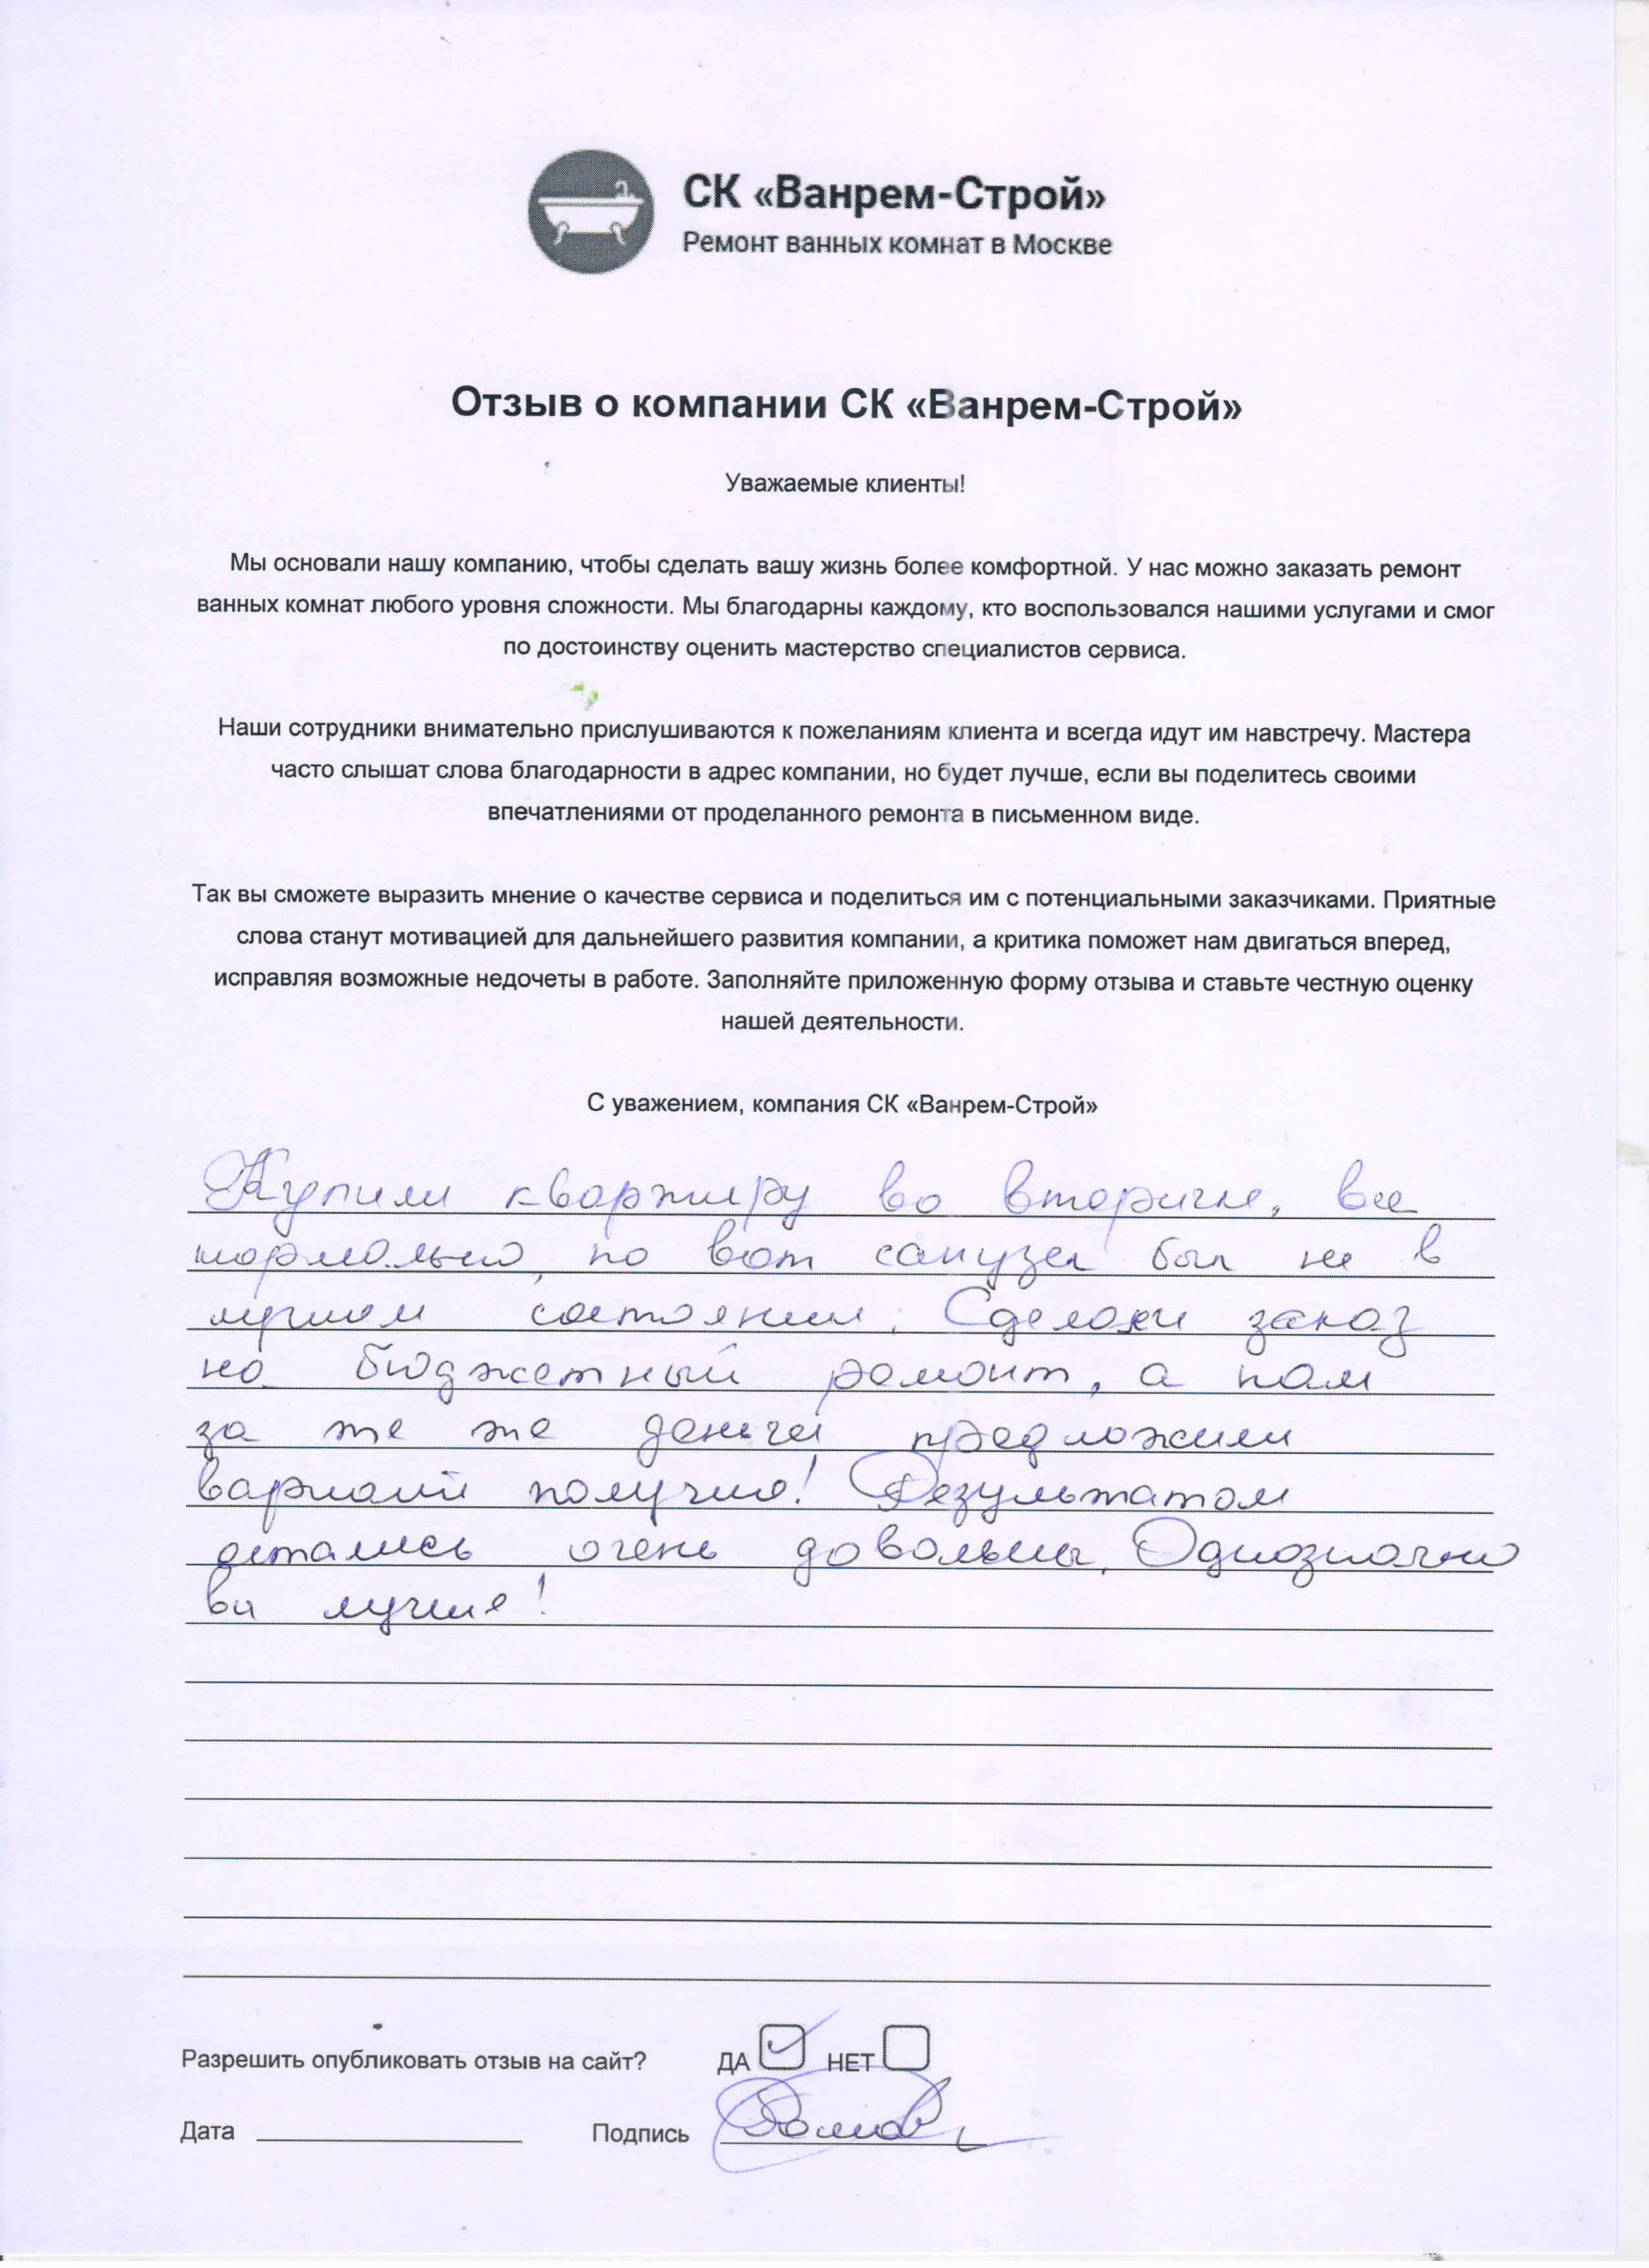 СК «Ванрем-Строй»
Ремонт ванных комнат в Москве
Отзыв о компании СК «Ванрем-Строй»
Уважаемые клиенты!
Мы основали нашу компанию, чтобы сделать вашу жизнь более комфортной. У нас можно заказать ремонт
ванных комнат любого уровня сложности. Мы благодарны каждому, кто воспользовался нашими услугами и смог
по достоинству оценить мастерство специалистов сервиса.
Наши сотрудники внимательно прислушиваются к пожеланиям клиента и всегда идут им навстречу. Мастера
часто слышат слова благодарности в адрес компании, но будет лучше, если вы поделитесь своими
впечатлениями от проделанного ремонта в письменном виде.
Так вы сможете выразить мнение о качестве сервиса и поделиться им с потенциальными заказчиками. Приятные
слова станут мотивацией для дальнейшего развития компании, а критика поможет нам двигаться вперед,
исправляя возможные недочеты в работе. Заполняйте приложенную форму отзыва и ставьте честную оценку
нашей деятельности.
С уважением, компания СК «Ванрем-Строй»
Купили квартиру во вторичке, все
нормально, но вот санузел был не в
лучшем состоянии. Сделали заказ
на бюджетный ремонт, а нам
за те же деньги предложили
вариант получше! Результатом
остались очень довольны. Однозначно
вы лучшие!
Разрешить опубликовать отзыв на сайт? ДА НЕТ
Дата Подпись